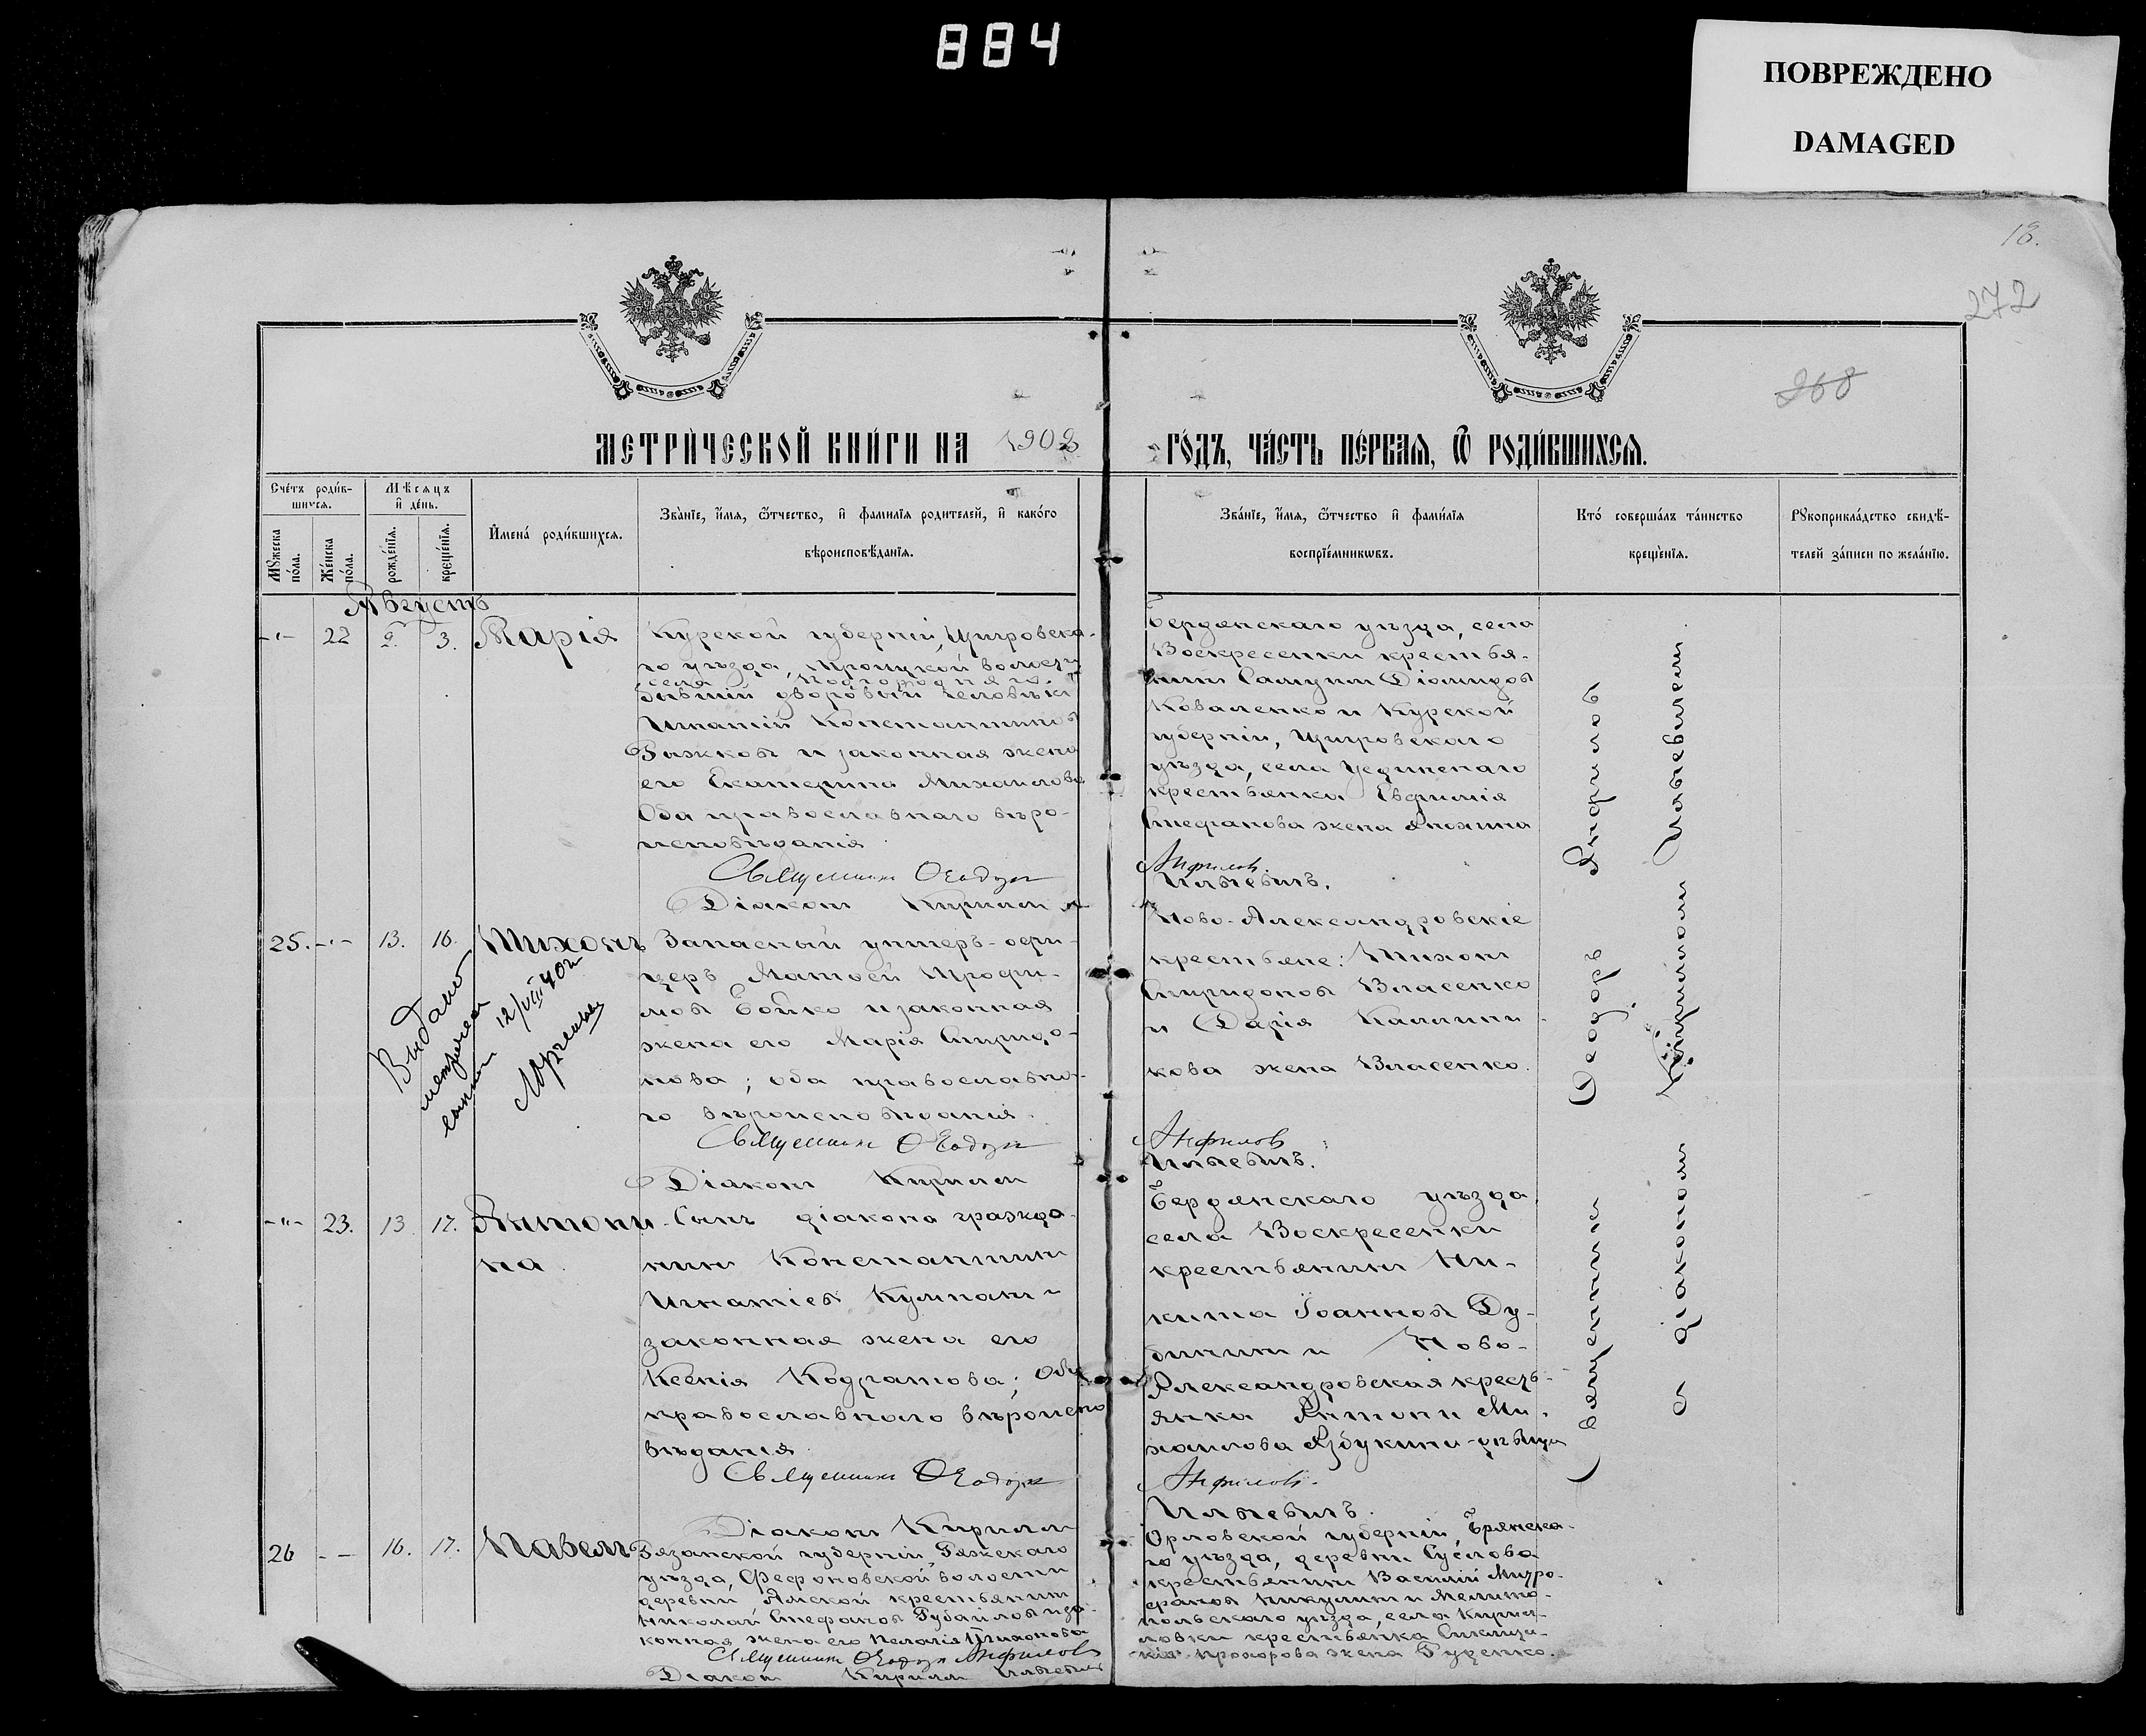 884
ПОВРЕЖДЕНО
DAMAGED
18.
272
268
МЕТРИ́ЧЕСКОЙ КНИ́ГИ НА 1902 ГО́ДЪ, ЧА́СТЬ ПЕ́РВАЯ, Ѿ РОДИ́ВШИХСЯ.
Сче́тъ роди́в-
шихся.
Мꙋжеска по́ла.
Же́нска по́ла.
Мѣсяцъ и де́нь.
рожде́нія.
креще́нія.
Имена́ роди́вшихся.
Зва́ніе, и́мя, ѻ́тчество, и фамилія родителей, и како́го
вѣроисповѣ́данія.
Зва́ніе, и́мя, ѻ́тчество и фами́лія
воспріе́мникωвъ.
Кто́ соверша́лъ та́инство
креще́нія.
Рꙋкоприкла́дство свидѣ́-
телей за́писи по жела́нію.
Августъ
-"- 22 2. 3. Марія
Курской губерніи, Щигровска-
го уѣзда, Троицкой волости
села
бывшій дворовый человѣкъ
Игнатій Константиновъ
Рыжковъ и законная жена
его Екатерина Михаилова
Оба православнаго вѣро-
исповѣданія.
Священникъ Ѳеодоръ Анфиловъ.
Діаконъ Кириллъ Ильевичъ.
Бердянскаго уѣзда, села
Воскресенки крестья-
нинъ Самуилъ Діомидовъ
Коваленко и Курской
губерніи, Щигровскаго
уѣзда, села
крестьянка Евфимія
Стефанова жена
25. -"- 13. 16. Тихонъ
Запасный унтеръ-офи-
церъ Матѳей Трофи-
мовъ Бойко и законная
жена его Марія Спиридо-
нова; оба православна-
го вѣроисповѣданія.
Священникъ Ѳеодоръ Анфиловъ
Діаконъ Кириллъ Ильевичъ.
Ново-Александровскіе
крестьяне: Тихонъ
Спиридоновъ Власенко
и Дарія Каллини-
кова жена Власенко.
Выдано
12/VIII 40г.
-"- 23. 13 17. Антони-
на.
Сынъ діакона гражда-
нинъ Константинъ
Игнатіевъ Кулпанъ и
законная жена его
Ксенія Кодратова; Оба
православнаго вѣроиспо
вѣданія.
Священникъ Ѳеодоръ Анфиловъ.
Діаконъ Кириллъ Ильевичъ.
Бердянскаго уѣзда,
села Воскресенки
крестьянинъ Ни-
кита Іоанновъ Ду-
бининъ и Ново-
Александровская кресть-
янка Антони Ми-
хаилова Азбукина-дѣвица
26 - - 16. 17. Павелъ
Рязанской губерніи, Ряжскаго
уѣзда, волости
деревни крестьянинъ
Николай Стефановъ и за-
конная жена его Пелагія
Священникъ Ѳеодоръ Анфиловъ
Діаконъ Кириллъ Ильевичъ
Орловской губерніи, Брянска-
го уѣзда, деревни Суслова
крестьянинъ Василій Митро-
фановъ Никулинъ и Мелито-
польскаго уѣзда, села Кирил-
ловки крестьянка
Прохорова жена Гуценко.
Священникъ Ѳеодоръ Анфиловъ
съ діакономъ Кирилломъ Ильевичемъ.